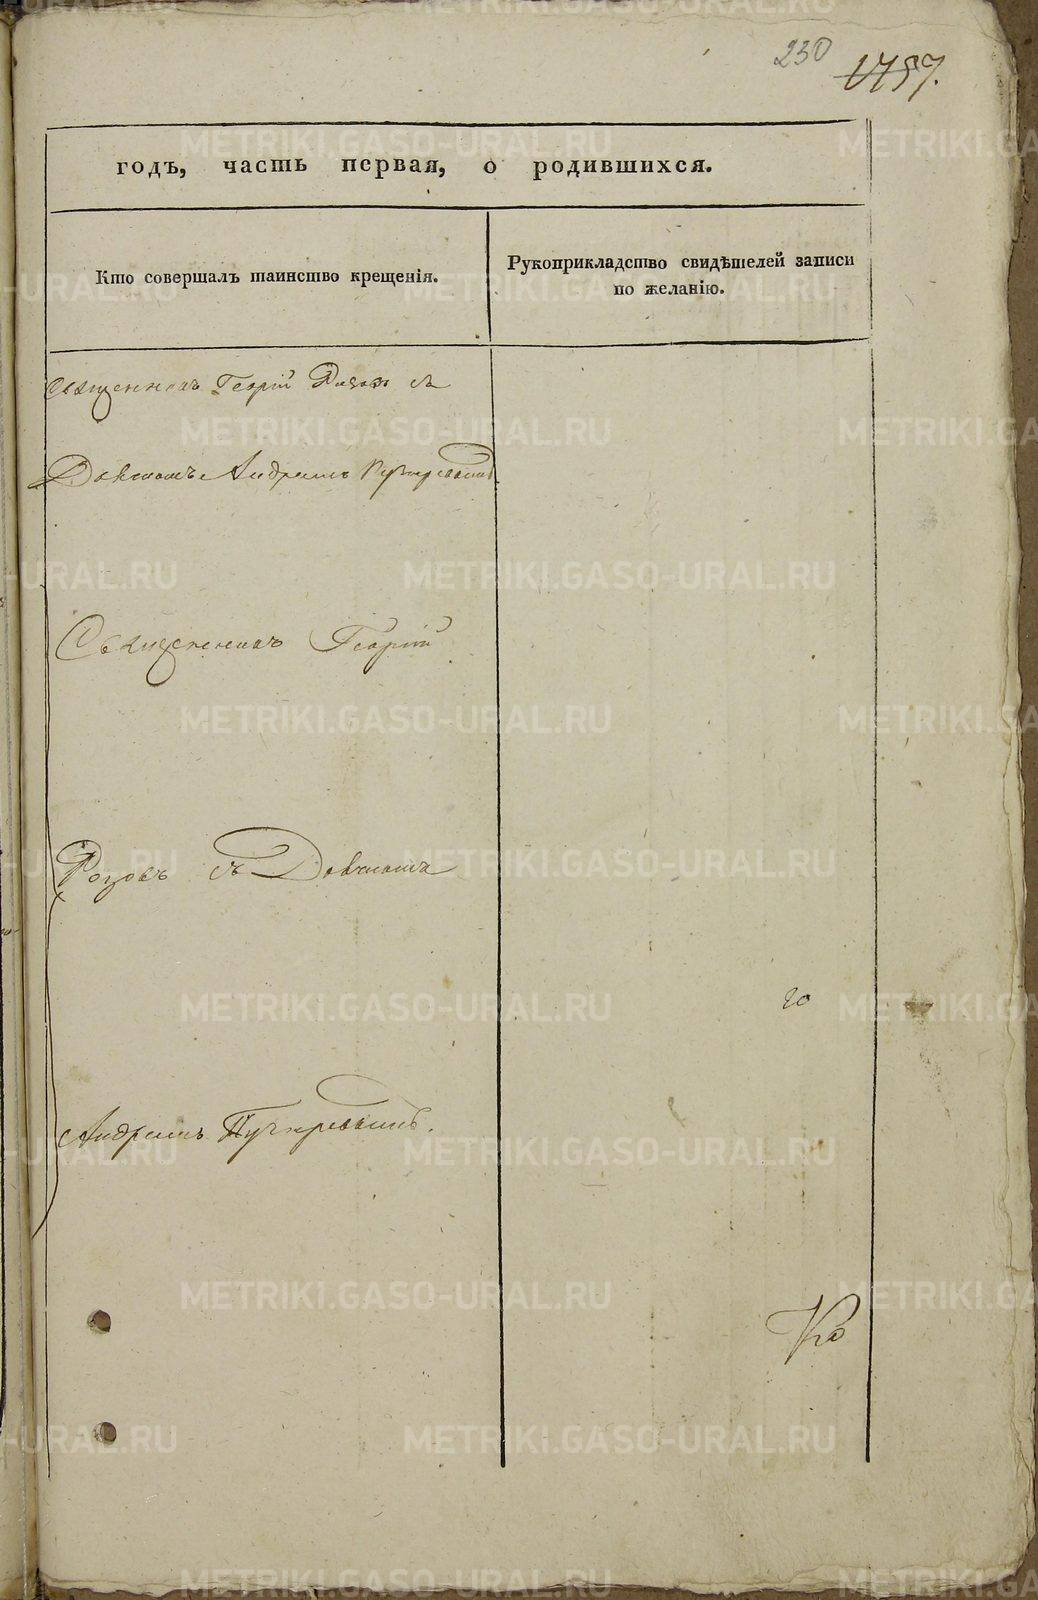 230
1757.
годъ, часть первая, о родившихся.
Кто совершалъ таинство крещенія.
Рукоприкладство свидѣтелей записи
по желанію.
Священникъ Георгій Розовъ съ
Дьячкомъ Андреемъ
Священникъ Георгій
Розовъ съ Дьячкомъ
го
Андреемъ
Ко
METRIKI.GASO-URAL.RU